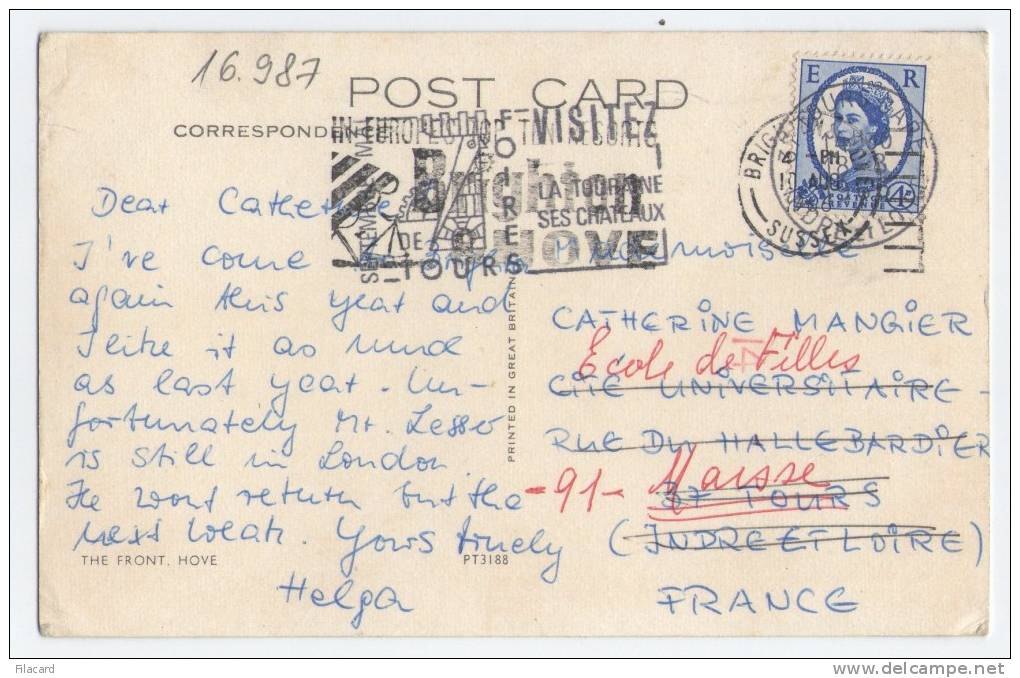 16.987
POST CARD
CORRESPONDENCE
E R
4D
BRIGHTON
SUSSEX
VISITEZ
LA TOURAINE
SES CHATEAUX
FOIRE
DE
TOURS
Brighton
HOVE
Dear Catherine
I've come
again this year and
I like it as much
as last year. Un-
fortunately Mr. Lesser
is still in London.
He won't return but the
next week. Yours truely
Helga
THE FRONT, HOVE
PT3188
PRINTED IN GREAT BRITAIN
Mademoiselle
CATHERINE MANGIER
École de Filles
CITÉ UNIVERSITAIRE -
RUE DU HALLEBARDIER
-91- Maisse
37 TOURS
(INDRE ET LOIRE)
FRANCE
Filacard
http://www.delcampe.net